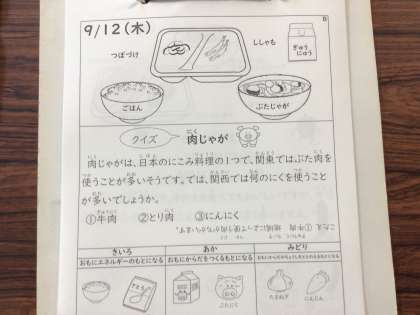 B
9/12(木)
つぼづけ
ししゃも
ぎゅうにゅう
ごはん
ぶたじゃが
クイズ 肉じゃが
肉じゃがは、日本のにこみ料理の1つで、関東ではぶた肉を
使うことが多いそうです。では、関西では何のにくを使うこと
が多いでしょうか。
①牛肉 ②とり肉 ③にんにく
こたえ ①牛肉 地域によって使う肉がちがいます。
きいろ あか みどり
おもにエネルギーのもとになる おもにからだをつくるもとになる おもにからだのちょうしをととのえるもとになる
ぶたにく たまねぎ にんじん